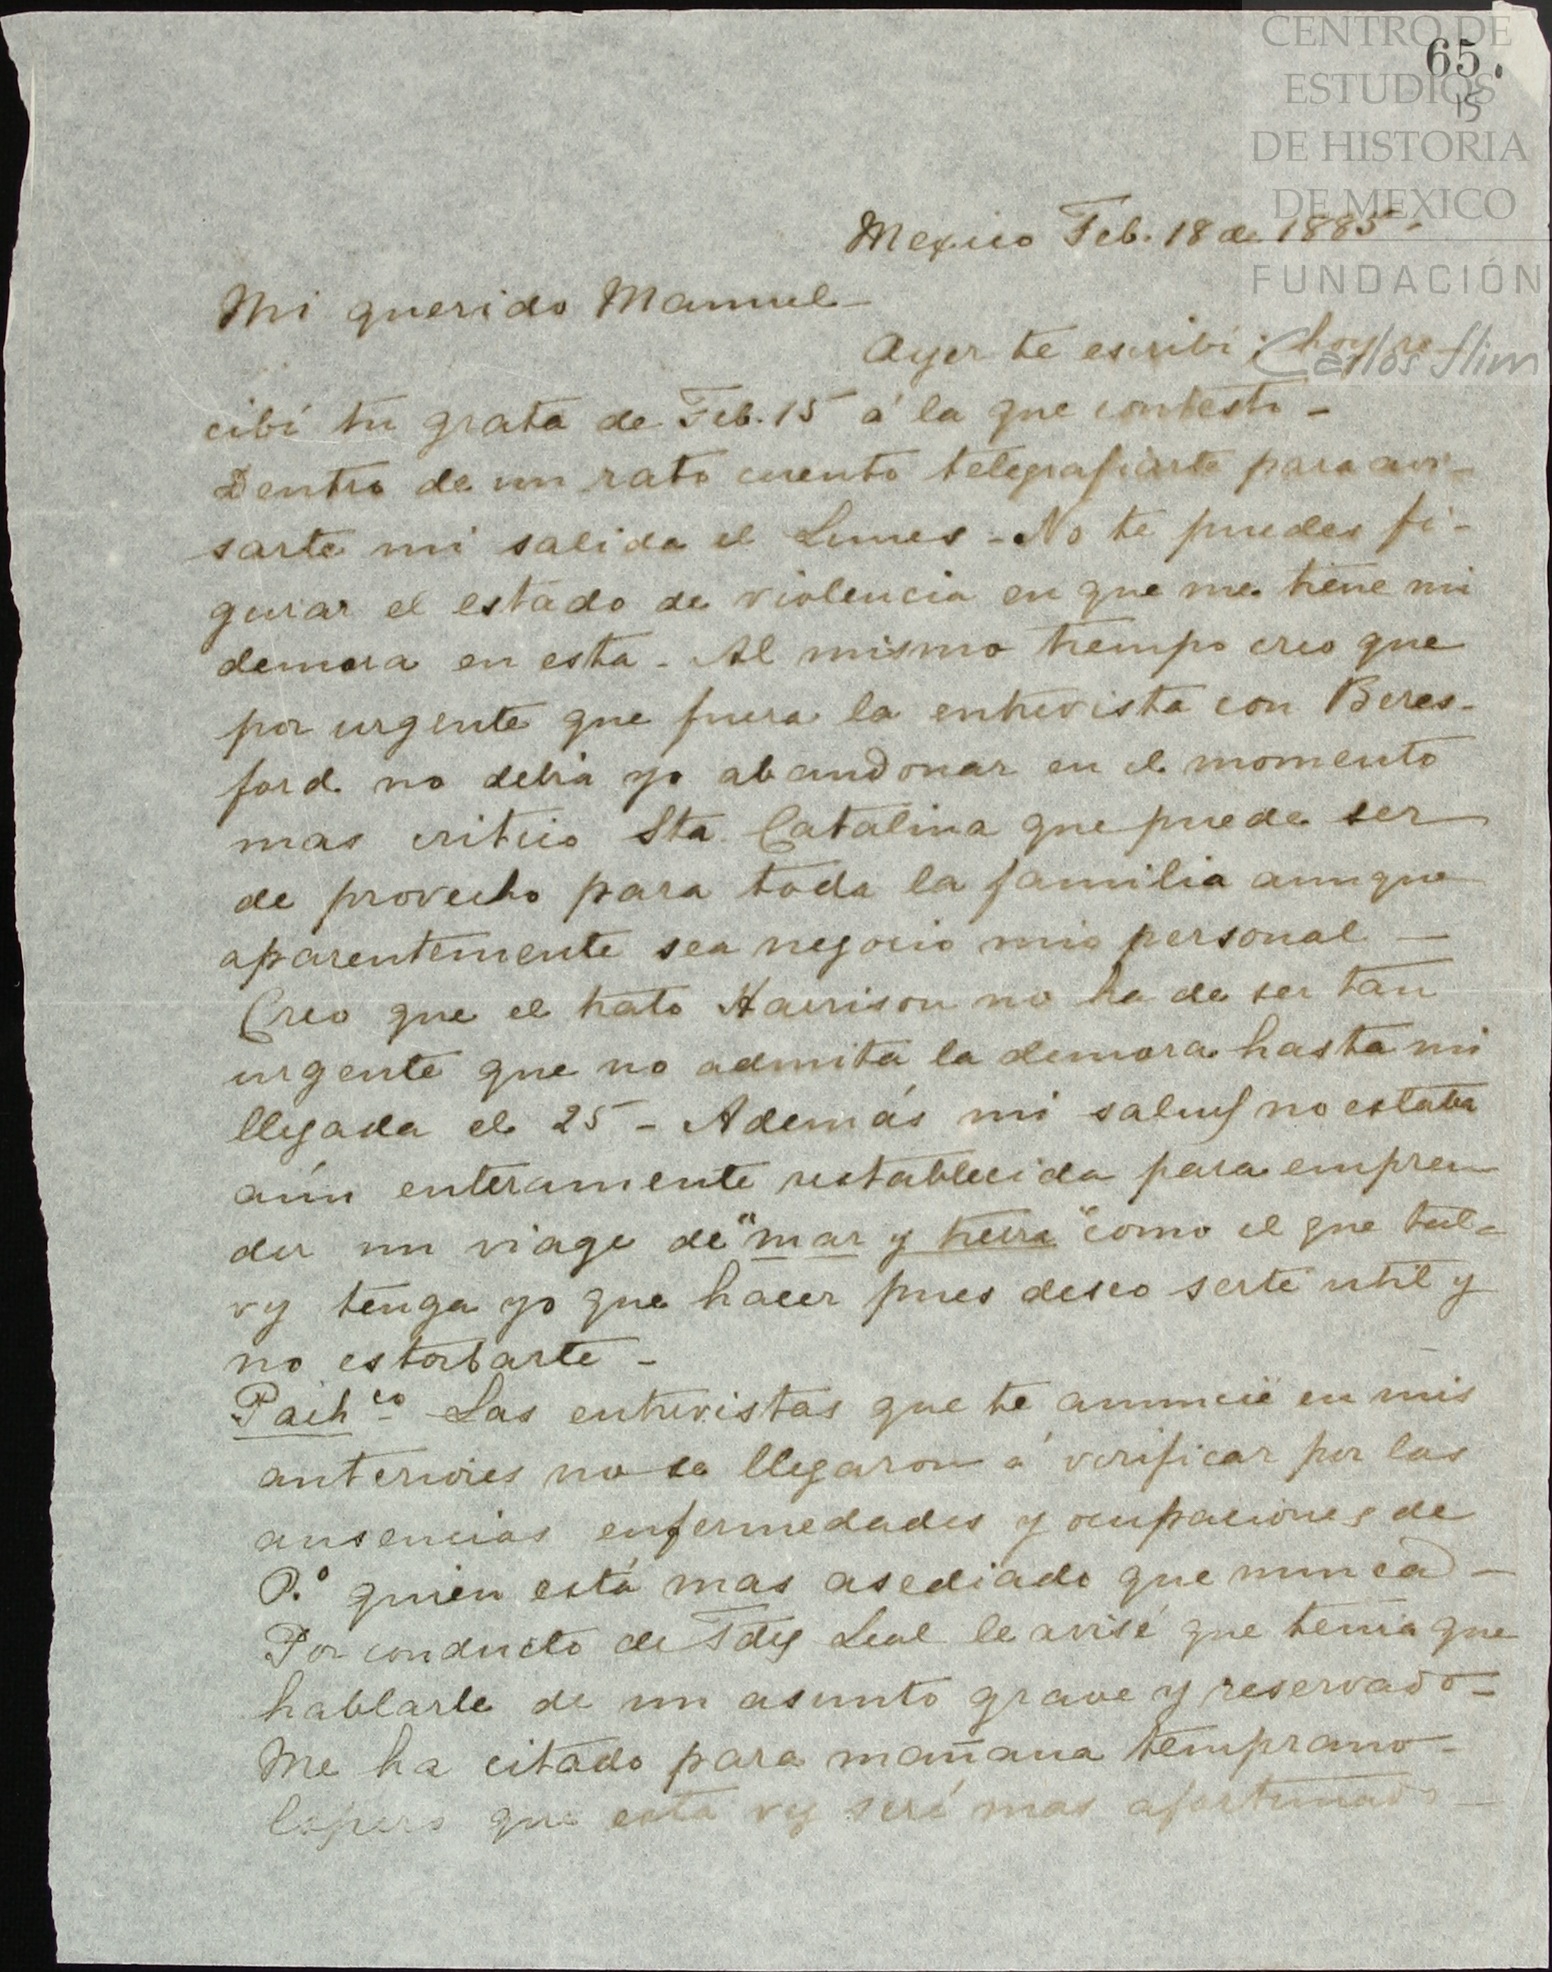 CENTRO DE
ESTUDIOS
DE HISTORIA
DE MEXICO
FUNDACIÓN
Carlos Slim
65.
15
Mexico Feb. 18 de 1885.
Mi querido Manuel—
Ayer te escribí; hoy re-
cibí tu grata de Feb. 15 á la que contesto -
Dentro de un rato cuento telegrafiarte para avi-
sarte mi salida el Lunes - No te puedes fi-
gurar el estado de violencia en que me tiene mi
demora en esta - Al mismo tiempo creo que
por urgente que fuera la entrevista con Beres-
ford no debia yo abandonar en el momento
mas critico Sta. Catalina que puede ser
de provecho para toda la familia aunque
aparentemente sea negocio mio personal —
Creo que el trato Harrison no ha de ser tan
urgente que no admita la demora hasta mi
llegada el 25 - Además mi salud no estaba
aún enteramente restablecida para empren-
der un viage de "mar y tierra" como el que tal-
vez tenga yo que hacer pues deseo serte util y
no estorbarte -
Pachco Las entrevistas que te anuncié en mis
anteriores no se llegaron á verificar por las
ausencias enfermedades y ocupaciones de
P.o quien está mas asediado que nunca —
Por conducto de Fdez Leal le avisé que tenia que
hablarle de un asunto grave y reservado -
Me ha citado para mañana temprano -
Espero que esta vez seré mas afortunado —